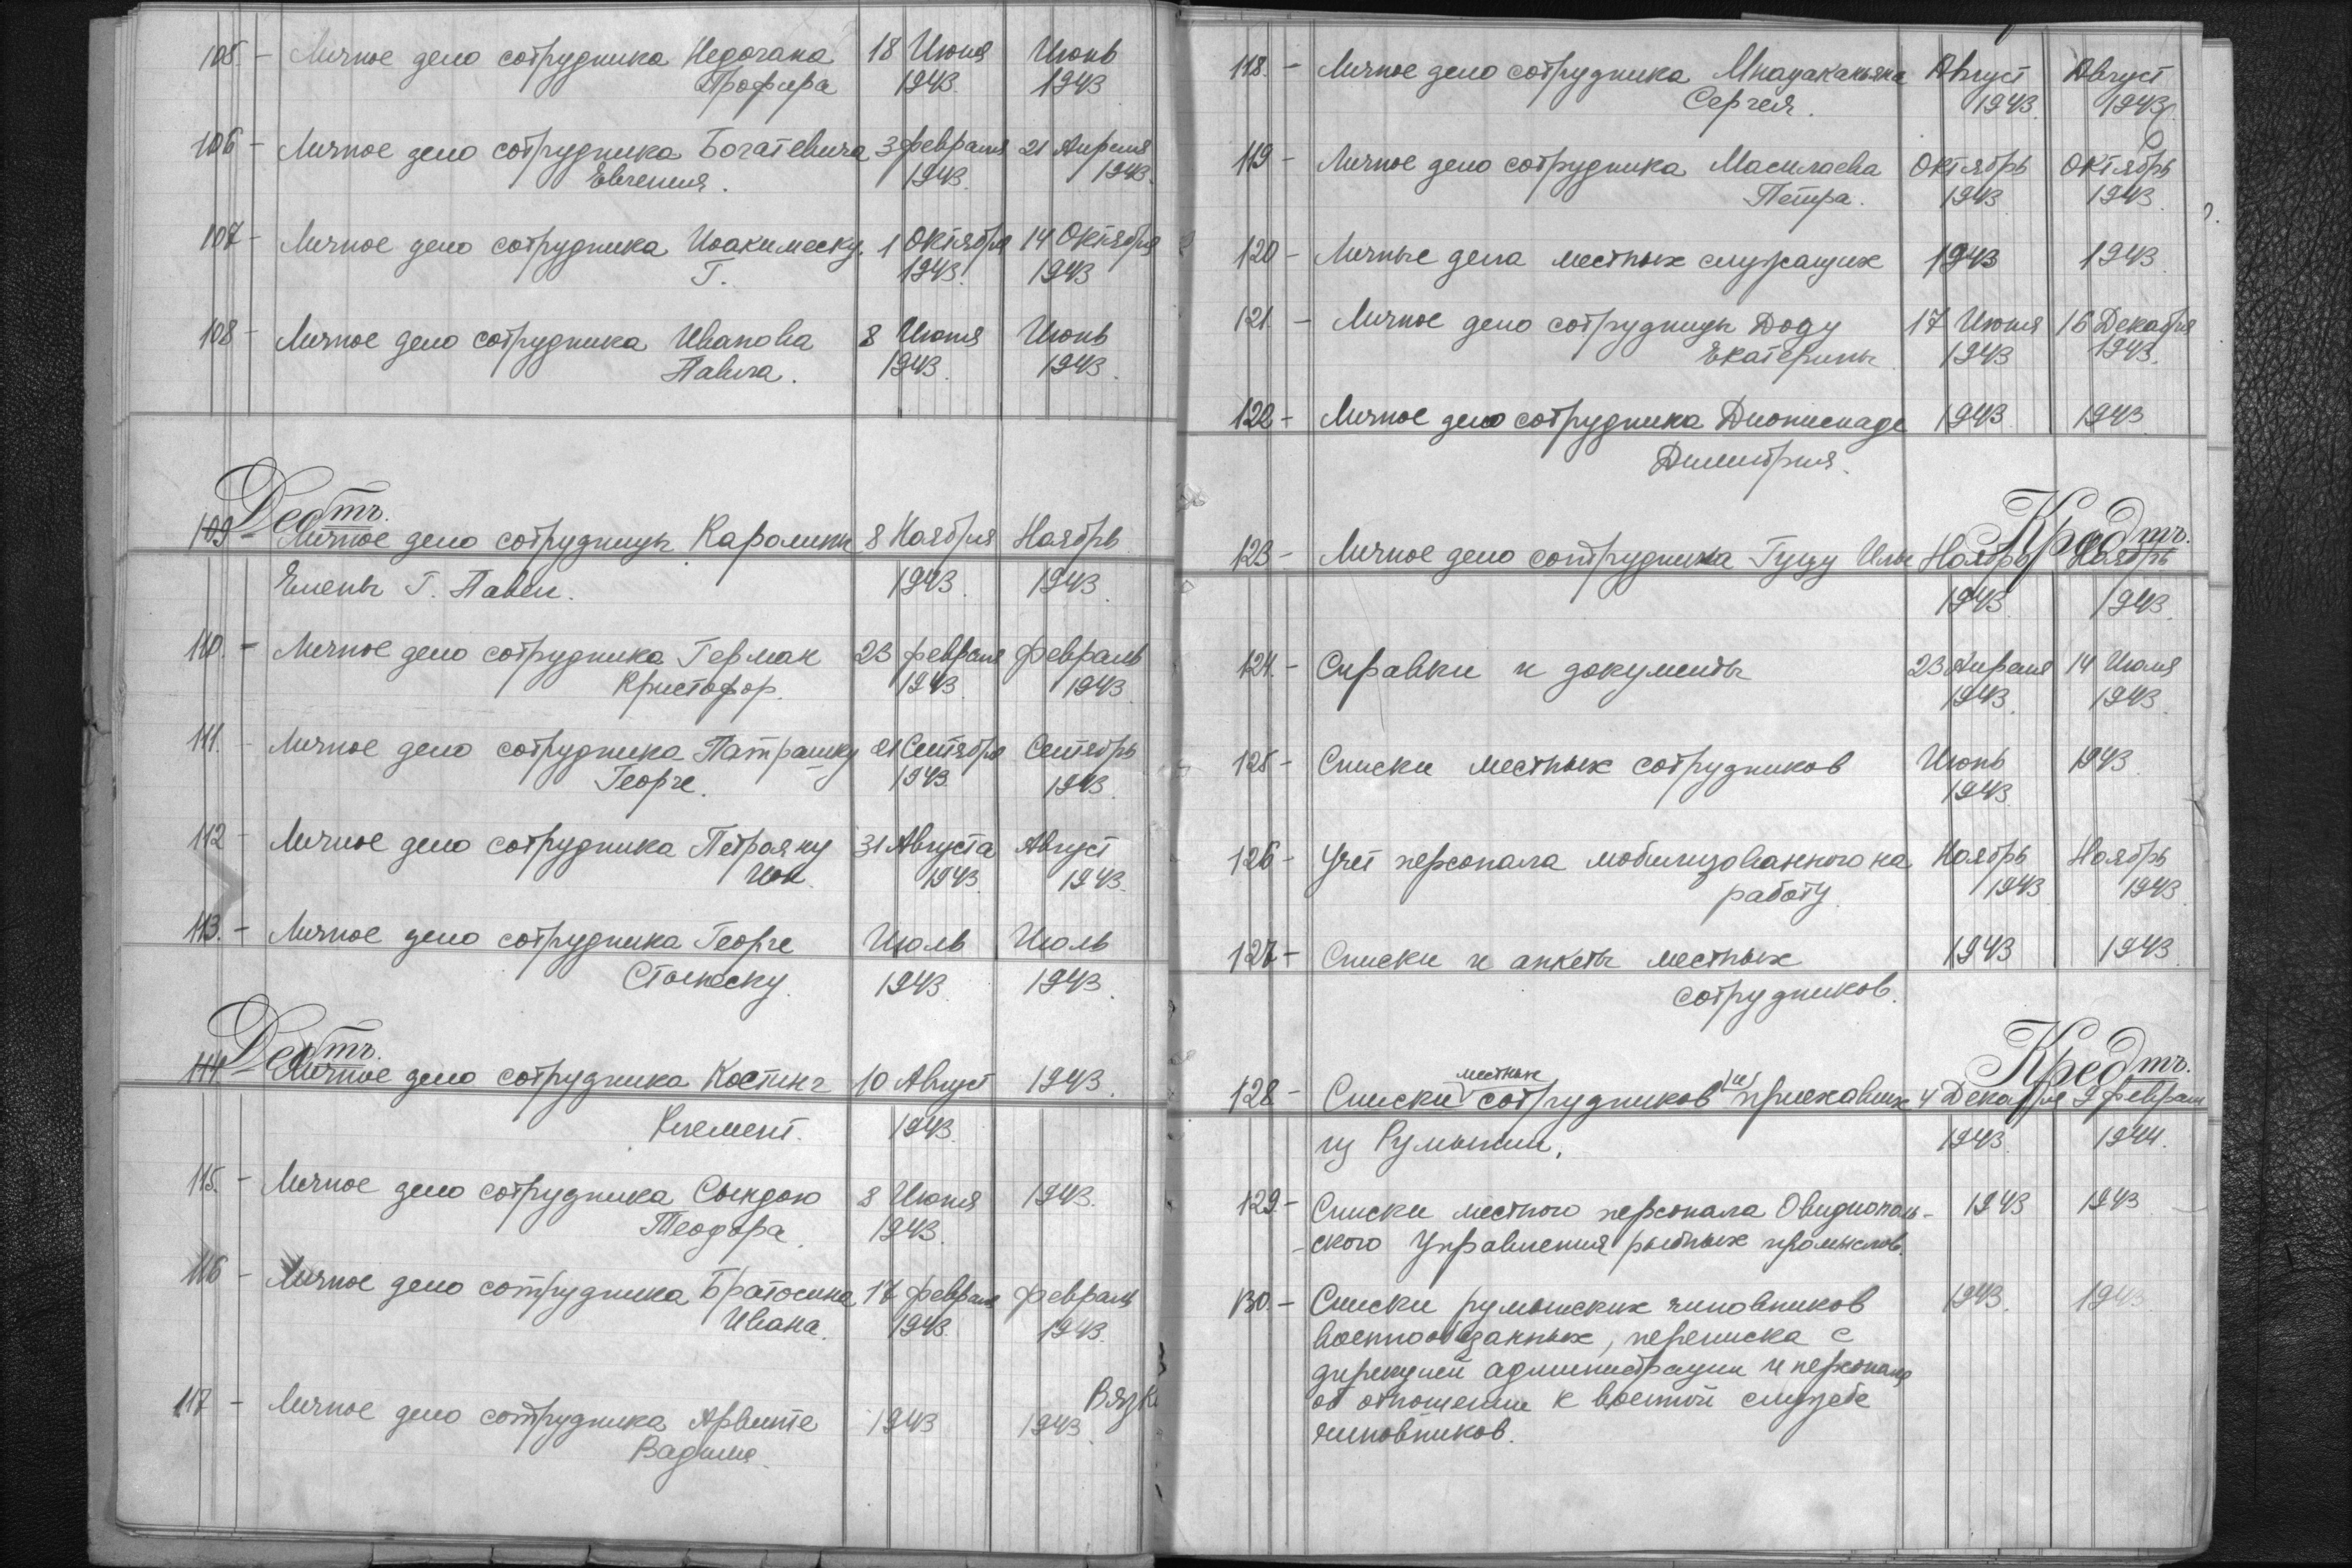 105. - Личное дело сотрудника Недогана 18 Июня Июнь
Профира 1943. 1943
106 - Личное дело сотрудника Богатевича 3 февраля 21 Апреля
Евгения. 1943. 1943.
107 - Личное дело сотрудника Иоакимеску 1 Октября 14 Октября
Г. 1943. 1943
108 - Личное дело сотрудника Иванова 8 Июня Июнь
Павла. 1943. 1943.
Дебтъ.
109 - Личное дело сотрудницы Каролины 8 Ноября Ноябрь
Елены Г. Павел. 1943. 1943.
110. - Личное дело сотрудника Гермак 23 февраля февраль
Кристофор. 1943. 1943
111. - Личное дело сотрудника Патрашку 21 Сентября Сентябрь
Георге. 1943. 1943.
112 - Личное дело сотрудника Петрояну 31 Августа Август
Ион. 1943. 1943.
113. - Личное дело сотрудника Георге Июль Июль
Стоенеску. 1943. 1943.
Дебтъ.
114 - Личное дело сотрудника Костинг 10 Август 1943.
Клемент. 1943.
115. - Личное дело сотрудника Сындою 8 Июня 1943.
Теодора. 1943.
116 - Личное дело сотрудника Братосина 17 февраля февраль
Ивана. 1943. 1943.
Вязк
117 - Личное дело сотрудника Арвинте 1943 1943
Вадима.
118. - Личное дело сотрудника Мнацаканьяна Август Август
Сергея. 1943. 1943.
119 - Личное дело сотрудника Масилаева Октябрь Октябрь
Петра. 1943. 1943.
120 - Личные дела местных служащих 1943 1943.
121. - Личное дело сотрудницы Доду 17 Июня 16 Декабря
Екатерины 1943 1943.
122 - Личное дело сотрудника Дионисиаде 1943. 1943
Димитрия.
Кредтъ.
123 - Личное дело сотрудника Гуцу Ильи Ноябрь Ноябрь
1943. 1943.
124. - Справки и документы 23 Апреля 14 Июля
1943. 1943.
125 - Списки местных сотрудников Июнь 1943.
1943.
126 - Учет персонала мобилизованного на Ноябрь Ноябрь
работу. 1943 1943.
127 - Списки и анкеты местных 1943 1943.
сотрудников.
Кредтъ.
местных
128 - Списки сотрудников (и) приехавших 4 Декабря 9 феврал
из Румынии. 1943. 1944.
129 - Списки местного персонала Овидиополь- 1943 1943
-ского Управления рыбных промыслов.
130. - Списки румынских чиновников 1943. 1943.
военнообязанных, переписка с
дирекцией администрации и персонала
об отношении к военной службе
чиновников.